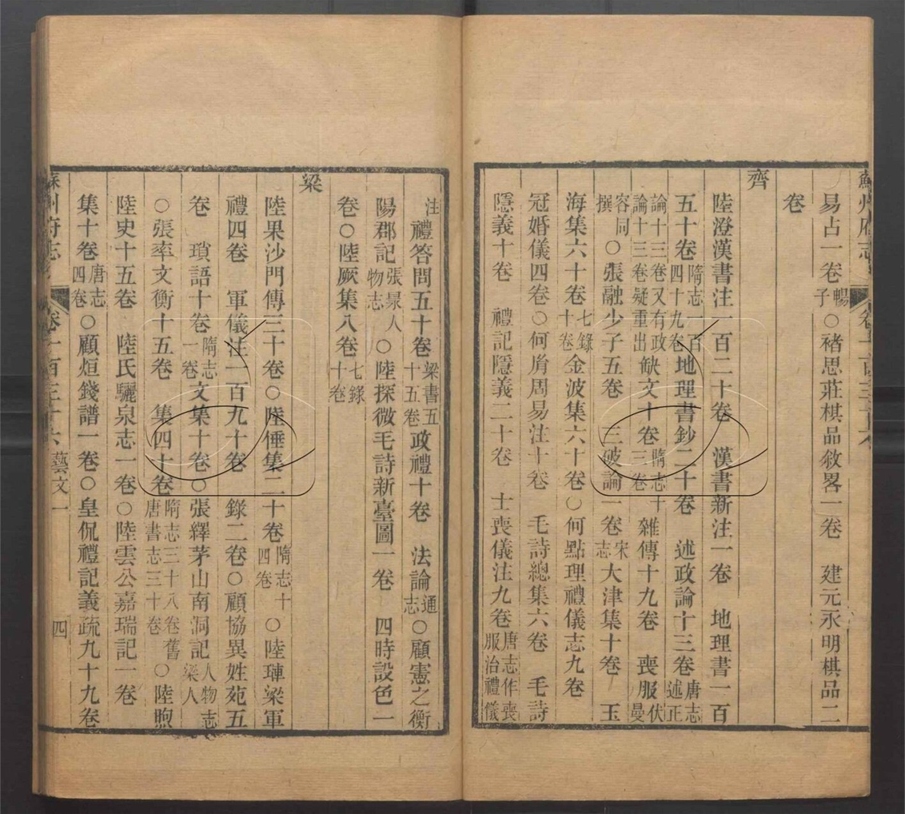 易占一卷暢子○褚思莊棋品敘畧一卷　建元永明棋品二
卷
齊
陸澄漢書注一百二十卷　漢書新注一卷　地理書一百
五十卷隋志一百四十九卷地理書鈔二十卷　述政論十三卷唐志述正
論十三卷又有政論十三卷疑重出缺文十卷隋志十三卷雜傳十九卷　喪服伏曼
容同撰○張融少子五卷　三破論一卷宋志大津集十卷　玉
海集六十卷七錄十卷金波集六十卷○何點理禮儀志九卷
冠婚儀四卷○何胤周易注十卷　毛詩總集六卷　毛詩
隱義十卷　禮記隱義二十卷　士喪儀注九卷唐志作喪服治禮儀
注禮答問五十卷梁書五十五卷政禮十卷　法論通志○顧憲之衡
陽郡記張㬎人物志○陸探微毛詩新臺圖一卷　四時設色一
卷○陸厥集八卷七錄十卷
梁
陸杲沙門傳三十卷○陸倕集二十卷隋志十四卷○陸璉梁軍
禮四卷　軍儀注一百九十卷　錄二卷○顧協異姓苑五
卷　瑣語十卷隋志一卷文集十卷○張繹茅山南洞記人物志梁人
○張率文衡十五卷　集四十卷隋志三十八卷舊唐書志三十卷○陸煦
陸史十五卷　陸氏驪泉志一卷○陸雲公嘉瑞記一卷
集十卷唐志四卷○顧烜錢譜一卷○皇侃禮記義疏九十九卷
蘇州府志　卷一百三十六　藝文一　四